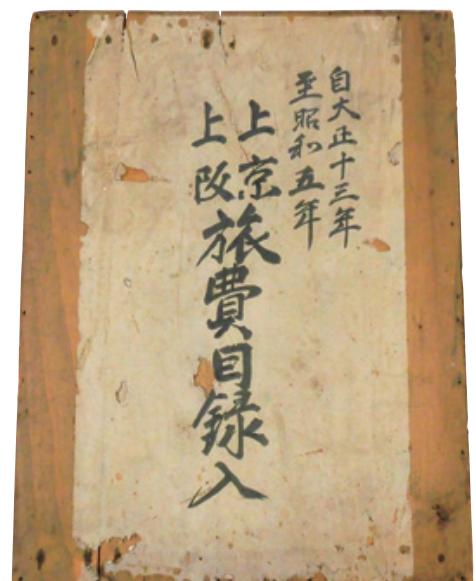 自大正十三年
至昭和五年
上京
上阪
旅費目録入